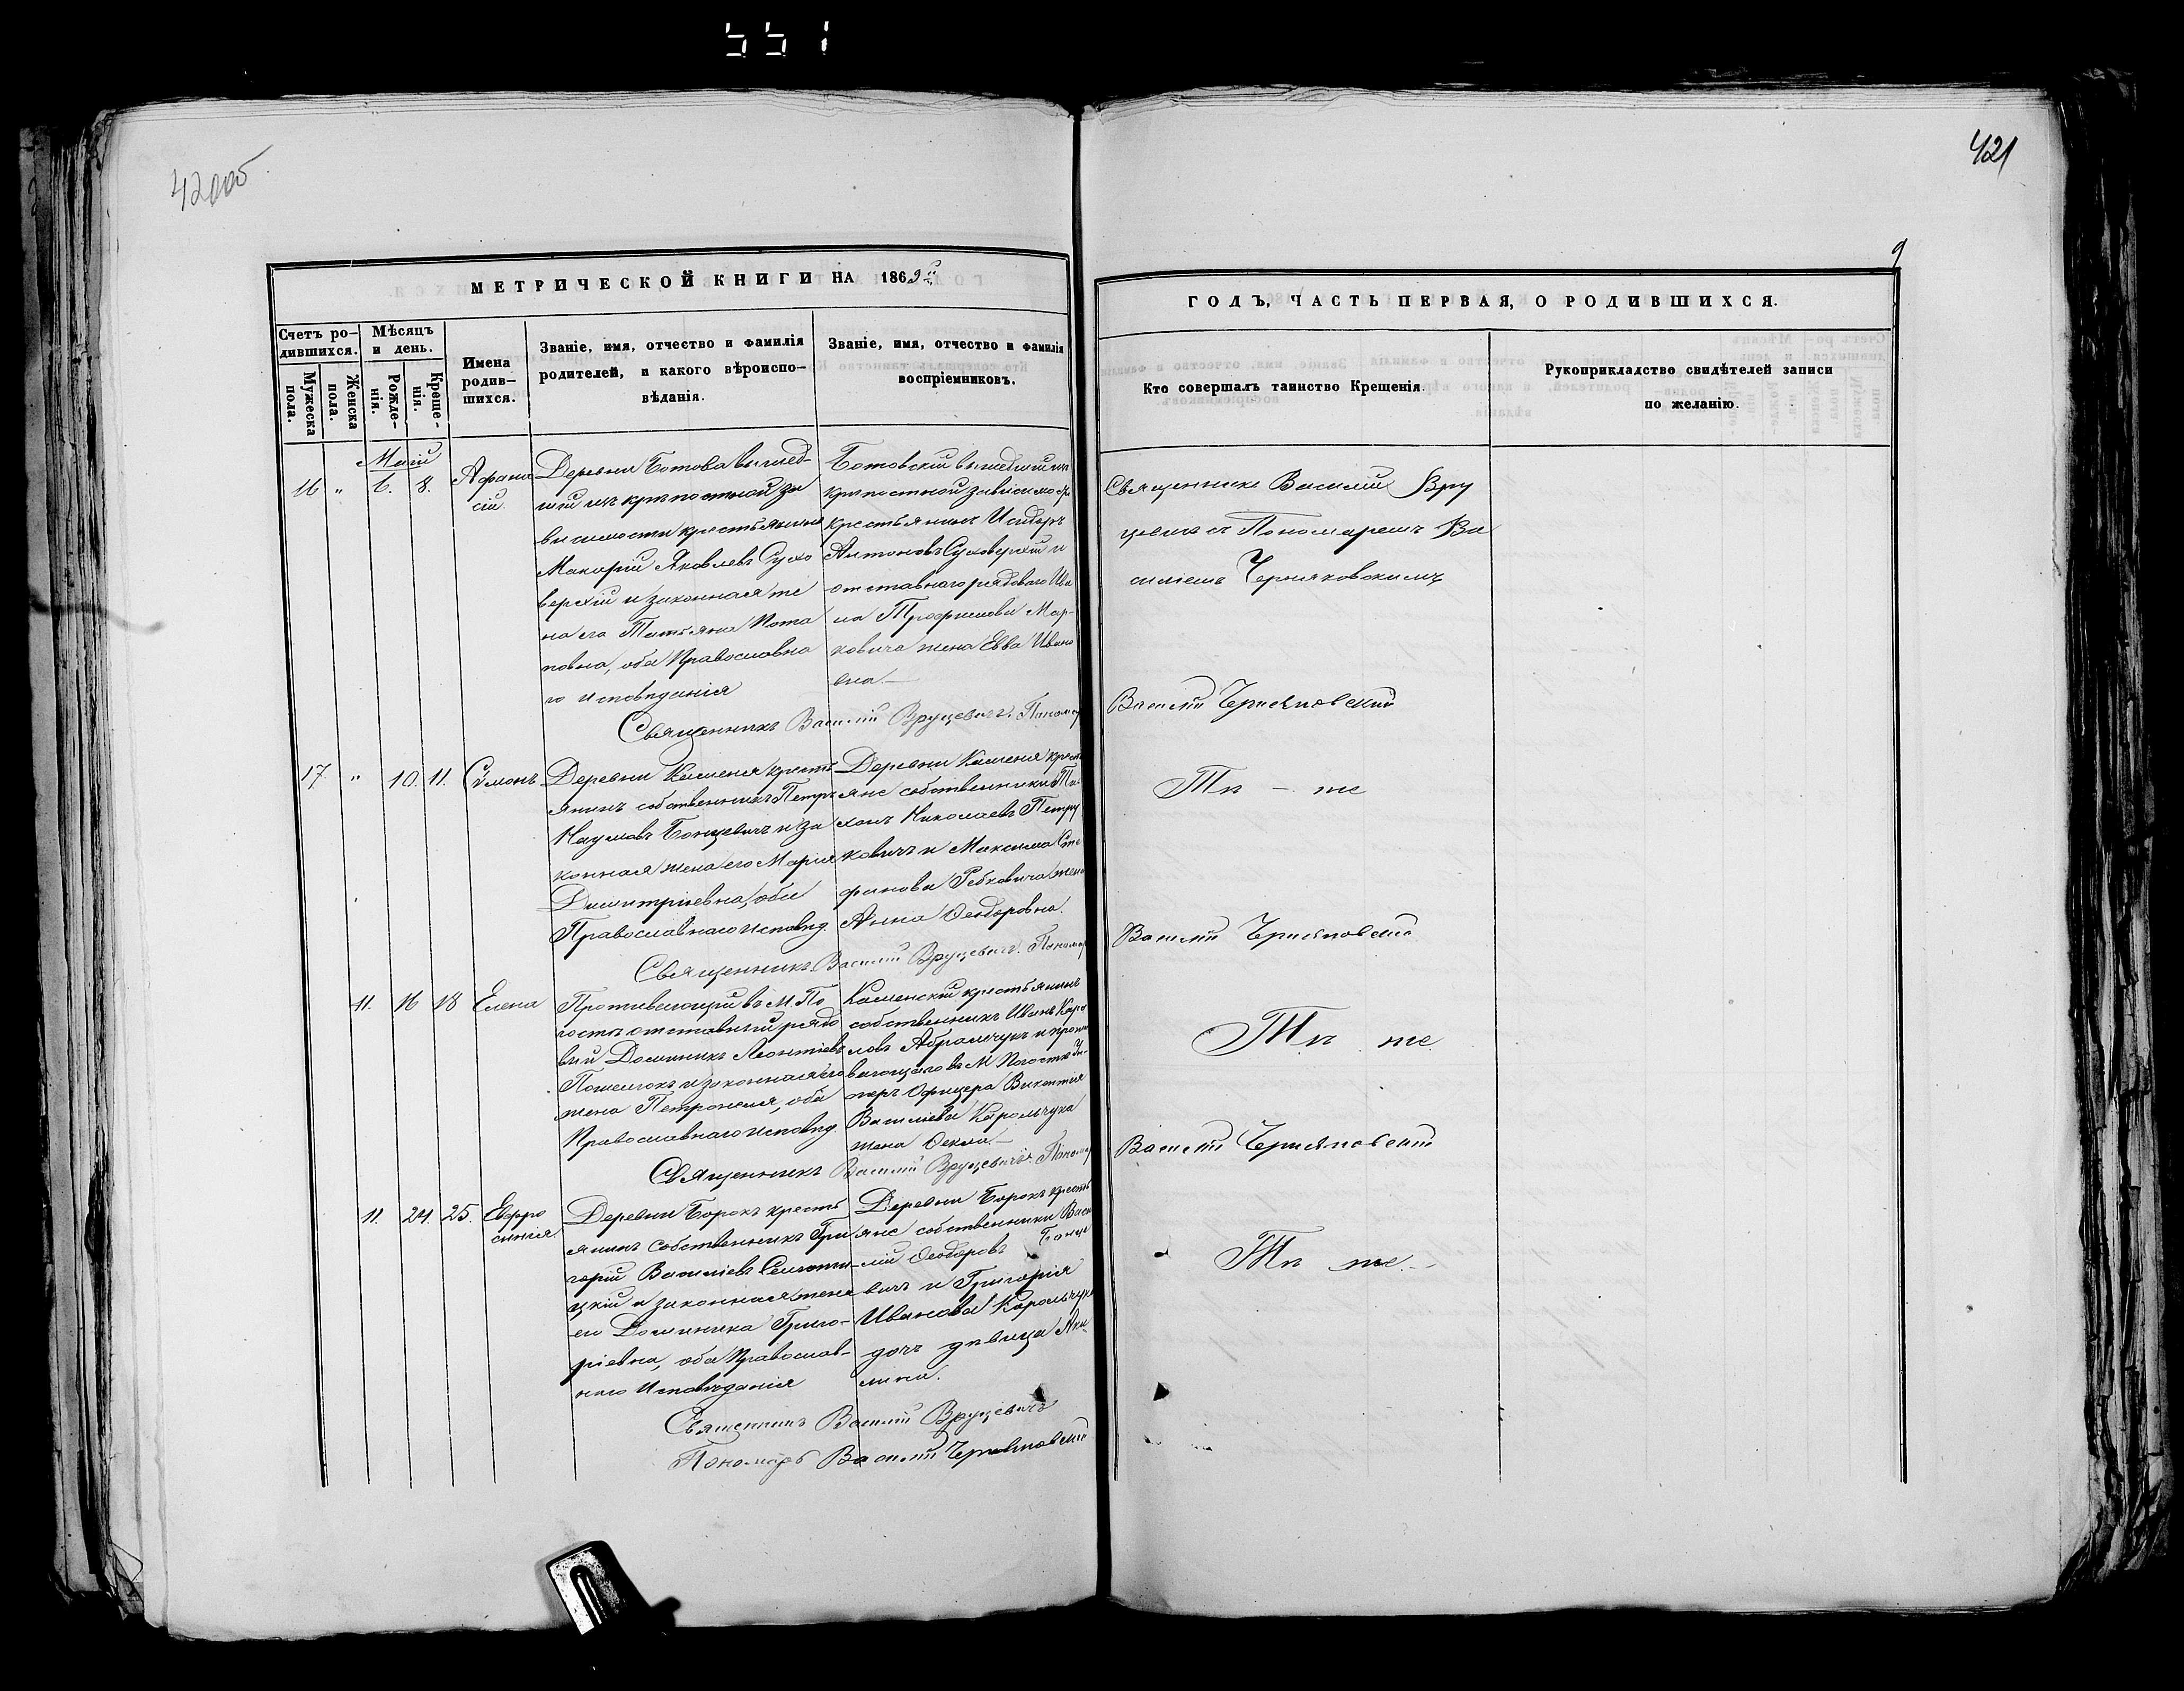 551
420об
421
9
МЕТРИЧЕСКОЙ КНИГИ НА 1869й
Счетъ ро-
дившихся.
Мужеска
пола.
Женска
пола.
Мѣсяцъ
и день.
Рожде-
нія.
Креще-
нія.
Имена
родив-
шихся.
Званіе, имя, отчество и фамилія
родителей, и какого вѣроиспо-
вѣданія.
Званіе, имя, отчество и фамилія
воспріемниковъ.
ГОДЪ, ЧАСТЬ ПЕРВАЯ, О РОДИВШИХСЯ.
Кто совершалъ таинство Крещенія.
Рукоприкладство свидѣтелей записи
по желанію.
Маій
16 " 6. 8.
Афана
сій.
Деревни Ботова вышед-
шій изъ крѣпостной за
висимости крестьянинъ
Макарій Яковлевъ Сухо
верхій и законная же
на его Татьяна Пота
повна, оба Православна
го исповѣданія
Ботовскій вышедшій изъ
крѣпостной зависимости
крестьянинъ Исидоръ
Антоновъ Суховерхій и
отставнаго рядоваго Ива
на Трофимова Мар-
ковича жена Евва Ивано
вна.—
Священникъ Василій Вру
цевичъ съ Пономаремъ Ва
силіемъ Черняковскимъ
Священникъ Василій Вруцевичъ. Пономар
Василій Черняковскій
17. " 10. 11. Симонъ
Деревни Каменя кресть
янинъ собственникъ Петръ
Наумовъ Бонцевичъ и за
конная жена его Марія
Димитріевна, оба
Православнаго исповѣд.
Деревни Каменя кресть
яне собственники Ти
хонъ Николаевъ Петру
ковичъ и Максима Сте
фанова Ребковича жена
Анна Ѳеодоровна.
Тѣ – же
Священникъ Василій Вруцевичъ. Пономар
Василій Черняковскій
11. 16 18 Елена
Проживающій въ М. По
гостѣ отставный рядо
вый Доминикъ Леонтіевъ
и законная его
жена Петронеля, оба
Православнаго исповѣд.
Каменскій крестьянинъ
собственникъ Иванъ Кири
ловъ Абрамчукъ и прожи
вающаго въ М. Погостѣ Ун-
теръ Офицера Викентія
Василіева Карольчука
жена Ѳекла.—
Тѣ же
Священникъ Василій Вруцевичъ. Пономар
Василій Черняковскій
11. 24. 25. Евфро
синія.
Деревни Борокъ кресть
янинъ собственникъ Гри
горій Василіевъ
цкій и законная жена
его Доминика Григо-
ріевна, оба Православ-
наго Исповѣданія
Деревни Борокъ кресть
яне собственники Васи
лій Ѳеодоровъ Бонце
вичъ и Григорія
Иванова Карольчука
дочь дѣвица Аку-
лина.
Тѣ же.—
Священникъ Василій Вруцевичъ
Пономарь Василій Черняковскій